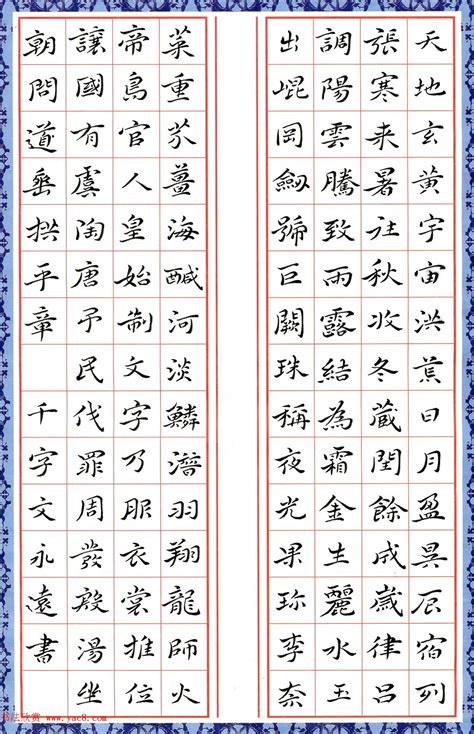 天地玄黄宇宙洪荒日月盈昃辰宿列
張寒来暑往秋收冬藏閏餘成歲律吕
調陽雲騰致雨露結為霜金生麗水玉
出崐岡劒號巨闕珠稱夜光果珍李柰
菜重芥薑海鹹河淡鱗潛羽翔龍師火
帝鳥官人皇始制文字乃服衣裳推位
讓國有虞陶唐弔民伐罪周發殷湯坐
朝問道垂拱平章
千字文永遠書
书法欣赏 www.yac8.com